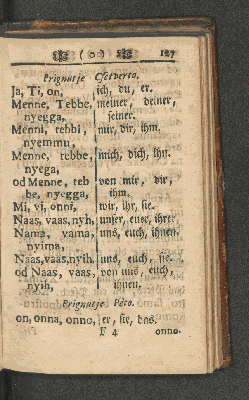 ( o ) 127
Prignutje Csetverto.
Ja, Ti, on, ich, du, er.
Menne, Tebbe, meiner, deiner,
nyegga, seiner.
Menni, tebbi, mir, dir, ihm.
nyemmu,
Menne, tebbe, mich, dich, ihn.
nyega,
od Menne, teb von mir, dir,
be, nyegga, ihm.
Mi, vi, onni, wir, ihr, sie.
Naas, vaas, nyih, unser, euer, ihrer,
Nama, vama, uns, euch, ihnen.
nyima,
Naas, vaas, nyih. uns, euch, sie.
od Naas, vaas, von uns, euch,
nyih, ihnen.
Prignutje Peto.
on, onna, onno, er, sie, das.
F 4 onno.